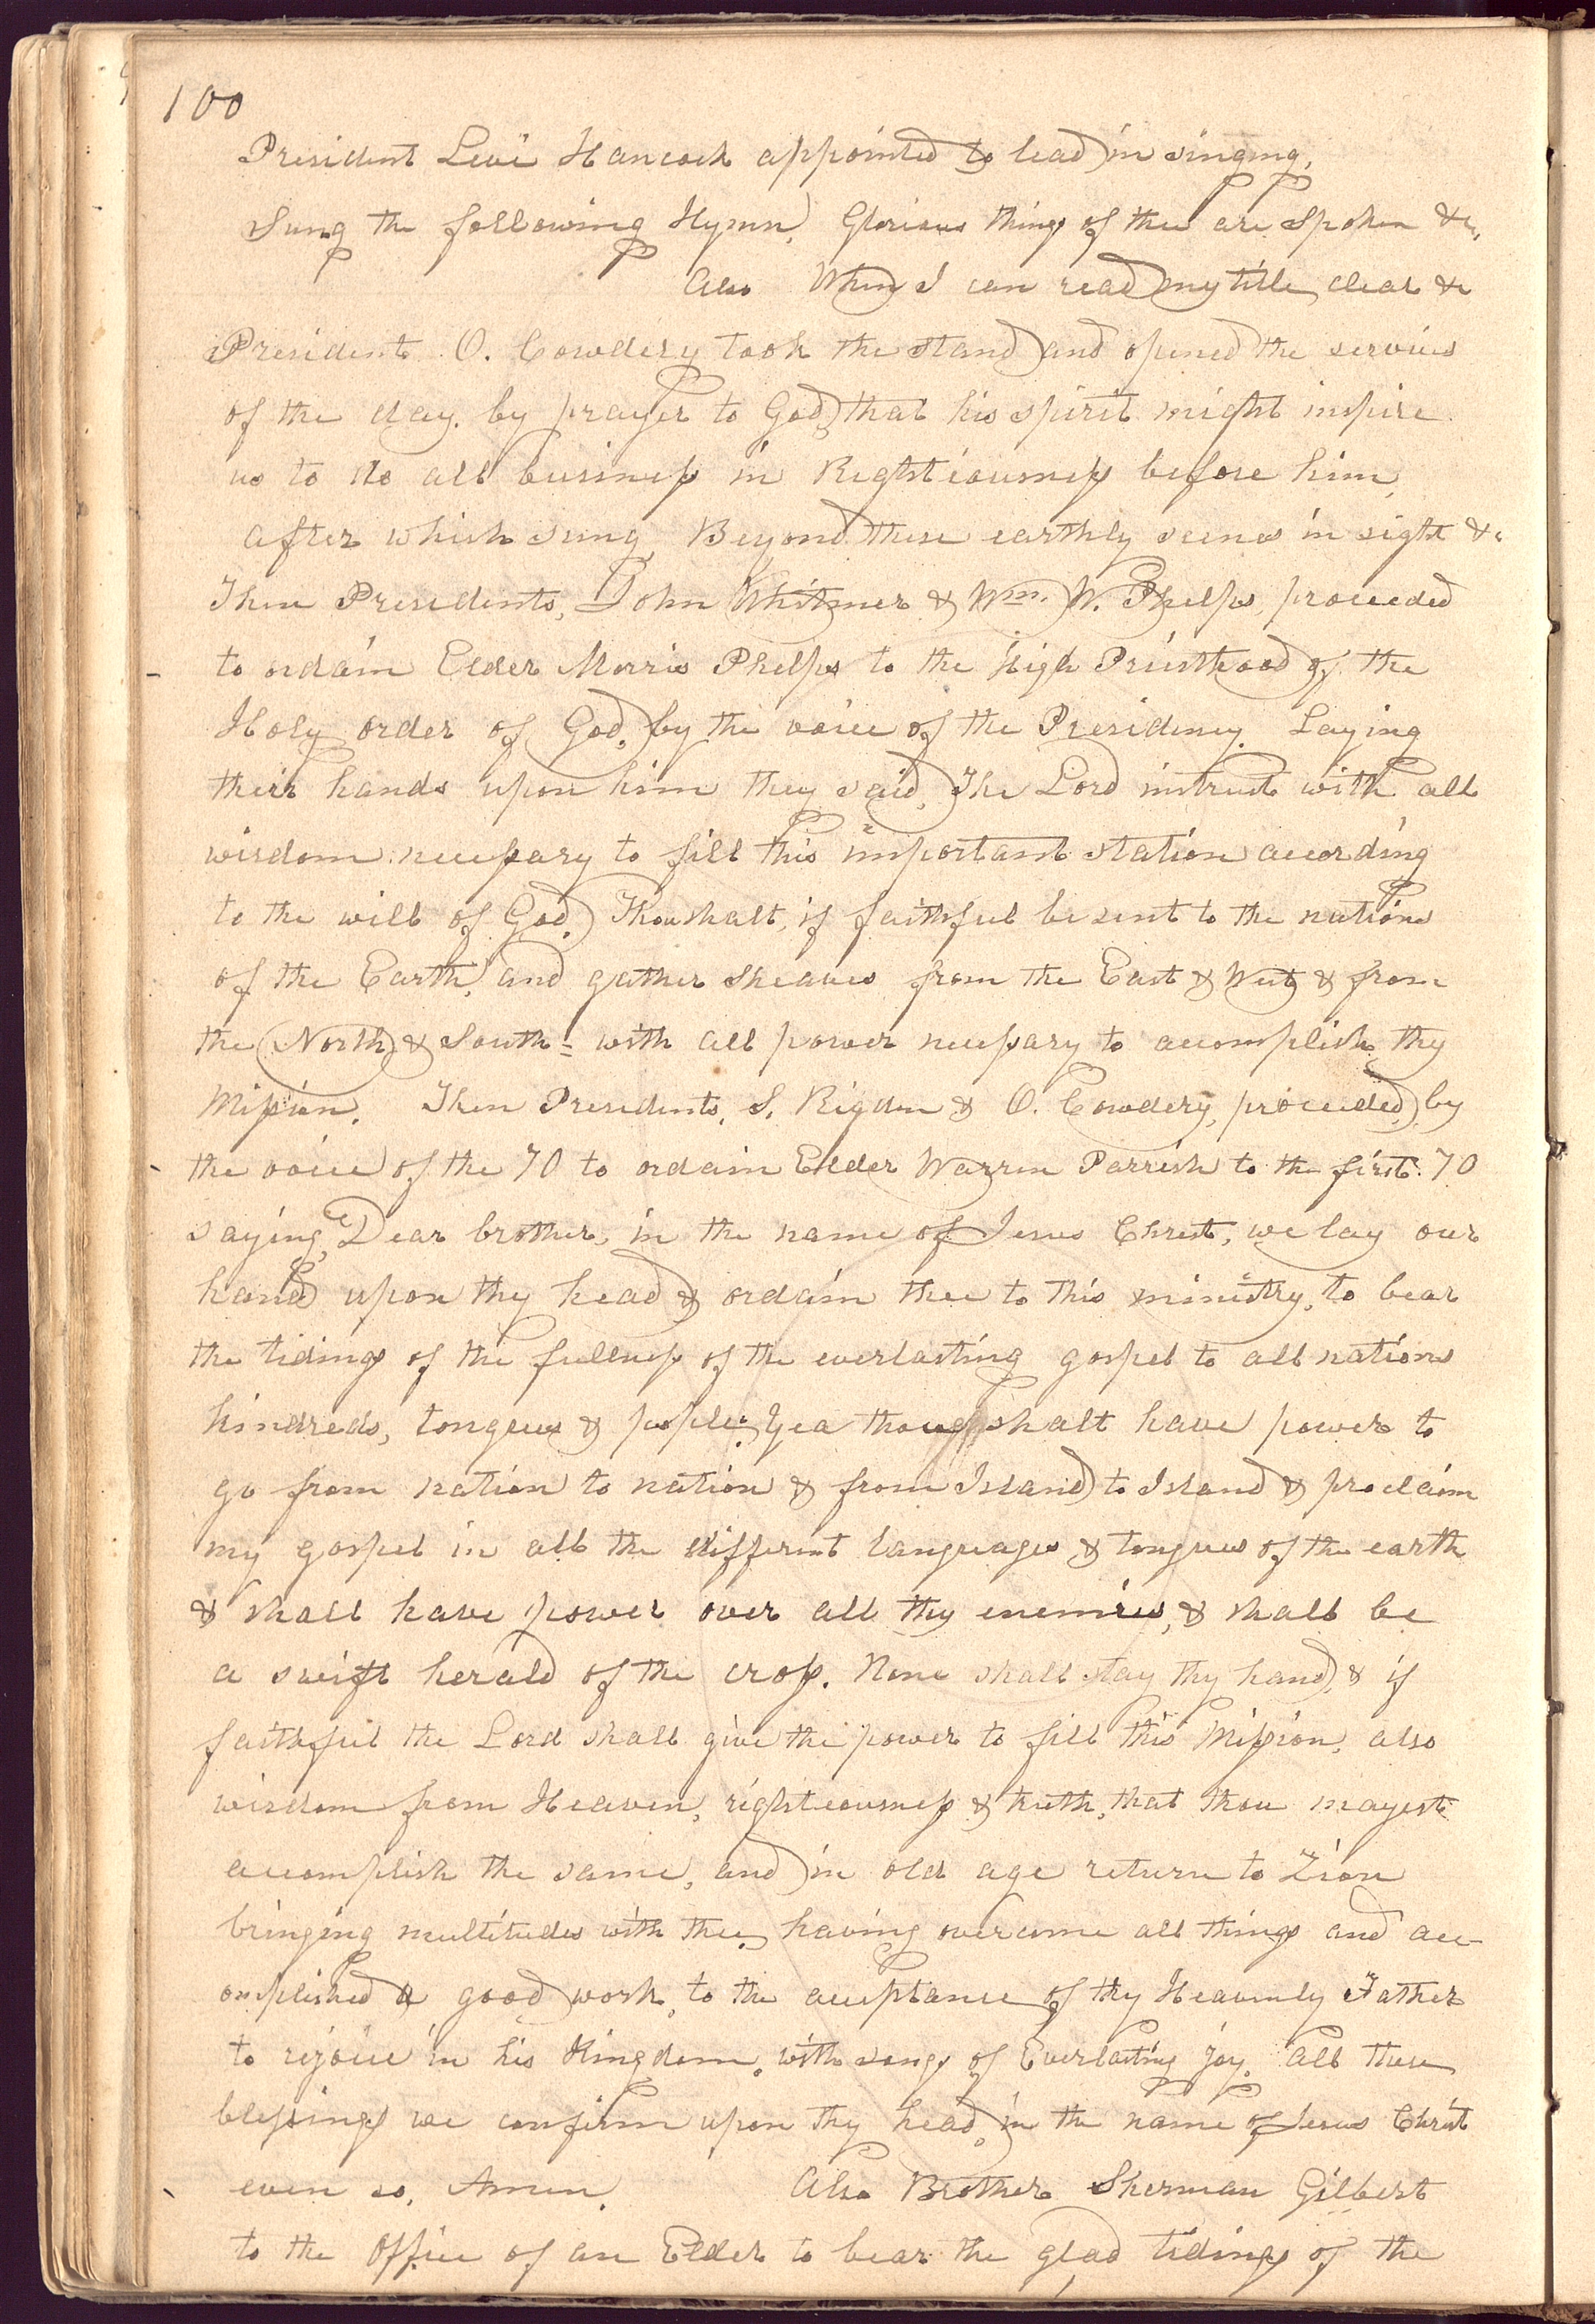 100
President Levi Hancock appointed to lead in singing,
Sung the following Hymn, Glorious things of thee are spoken &c,
Also When I can read my title clear &c
President O. Cowdery took the stand and opened the servises
of the day by prayer to God, that his spirit might inspire
us to do all business in Righteousness before him,
after which sung, Beyond these earthly scenes in sight &c
Then Presidents, John Whitmer & Wm. W. Phelps, proceeded
- to ordain Elder Morris Phelps to the High Priesthood of the
Holy order of God, by the voice of the Presidency. Laying
their hands upon him they said, The Lord intrust with all
wisdom necessary to fill this important station according
to the will of God. Thou shalt, if faithful be sent to the nations
of the Earth, and gather sheaves from the East & West & from
the North & South = with all power necessary to accomplish thy
Mission. Then Presidents, S. Rigdon & O. Cowdery, proceeded, by
- the voice of the 70 to ordain Elder Warren Parrish to the first 70
saying, "Dear brother, in the name of Jesus Christ, we lay our
hands upon thy head & ordain thee to this ministry, to bear
the tidings of the fullness of the everlasting gospel to all nations
kindreds, tongues & people; Yea thou shalt have power to
go from nation to nation & from Island to Island & proclaim
my gospel in all the different languages & tongues of the earth
& shall have power over all thy enemies, & shall be
a swift herald of the cross. None shall stay thy hand, & if
faithful the Lord shall give the power to fill this Mission, also
wisdom from Heaven, righteousness & truth, that thou mayest
accomplish the same, and in old age return to Zion
bringing multitudes with thee, having overcome all things and acc-
omplished a good work, to the acceptance of thy Heavenly Father
to rejoice in his Kingdom, with songs of Everlasting joy. All these
blessings we confirm upon thy head, in the name of Jesus Christ
- even so, Amen. Also Brother Sherman Gilbert
to the Office of an Elder to bear the glad tidings of the